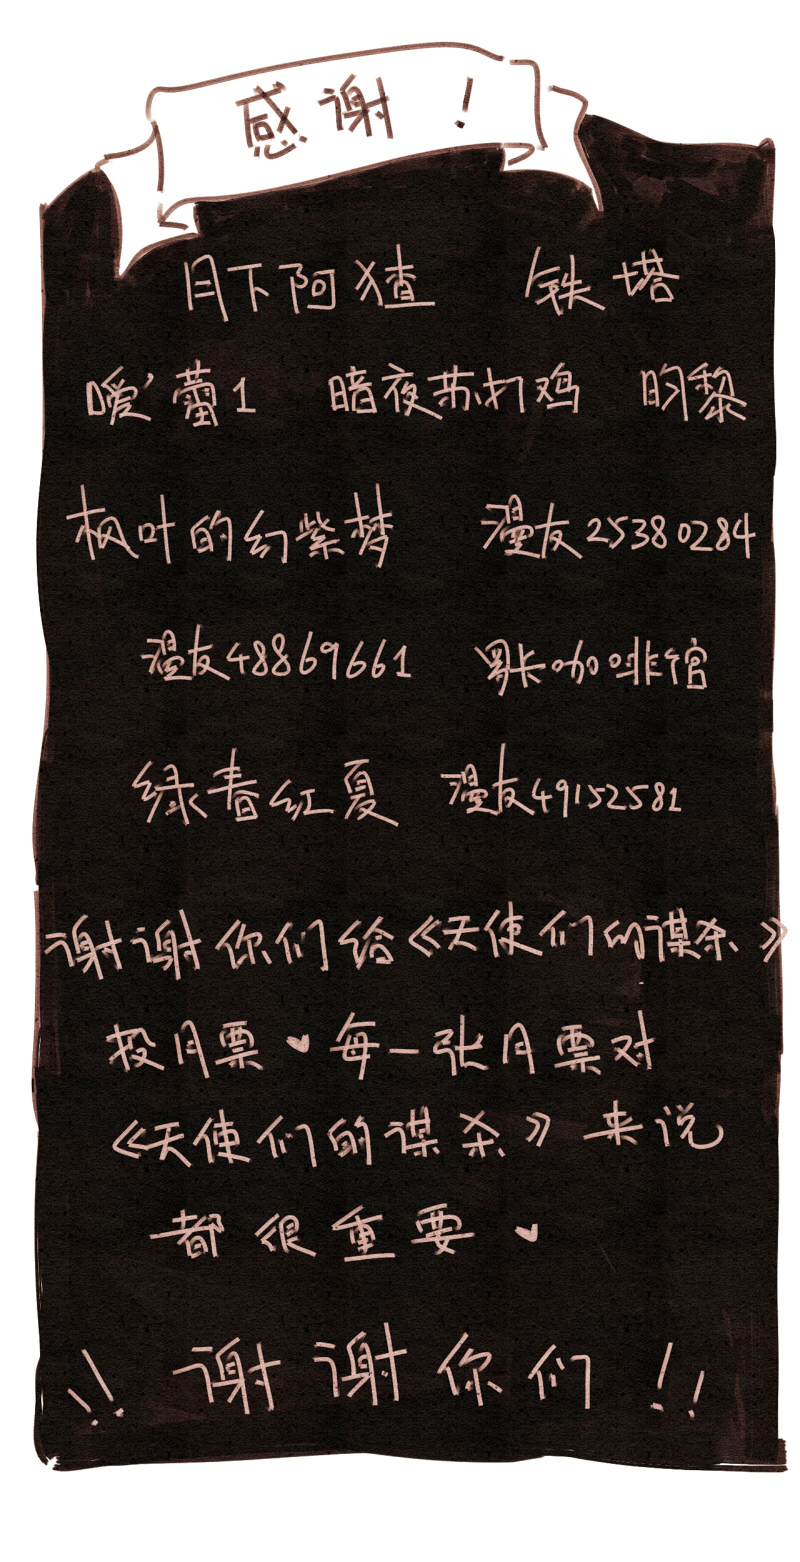 感谢！
月下阿猹 铁塔
嗳'蕾1 暗夜苏打鸡 昀黎
枫叶的幻紫梦 漫友25380284
漫友48869661 咖啡馆
绿春红夏 漫友49152581
谢谢你们给《天使们的谋杀》
投月票♥每一张月票对
《天使们的谋杀》来说
都很重要♥
!! 谢谢你们 !!